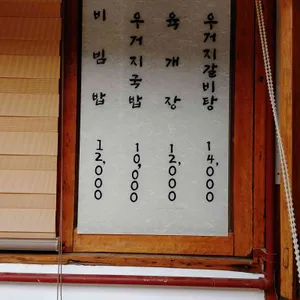 비빔밥 12,000
우거지국밥 10,000
육개장 12,000
우거지갈비탕 14,000